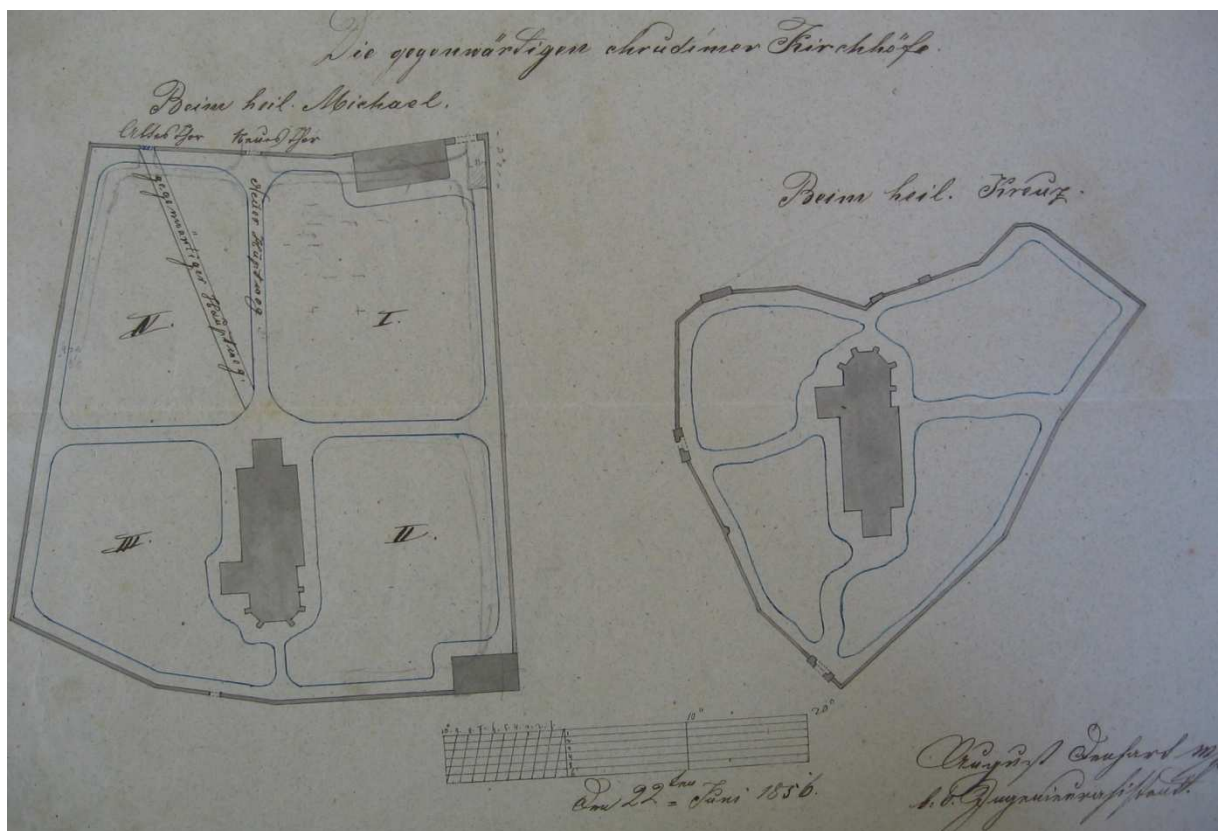 Die gegenwärtigen chrudimer Kirchhöfe.
Beim heil. Michael.
Altes Thor
Neues Thor
gegenwärtiger Hauptweg.
Neuer Hauptweg
IV.
I.
III.
II.
Beim heil. Kreuz.
10°
20°
Den 22ten Juni 1856.
August
k. k. Ingenieurassistent.